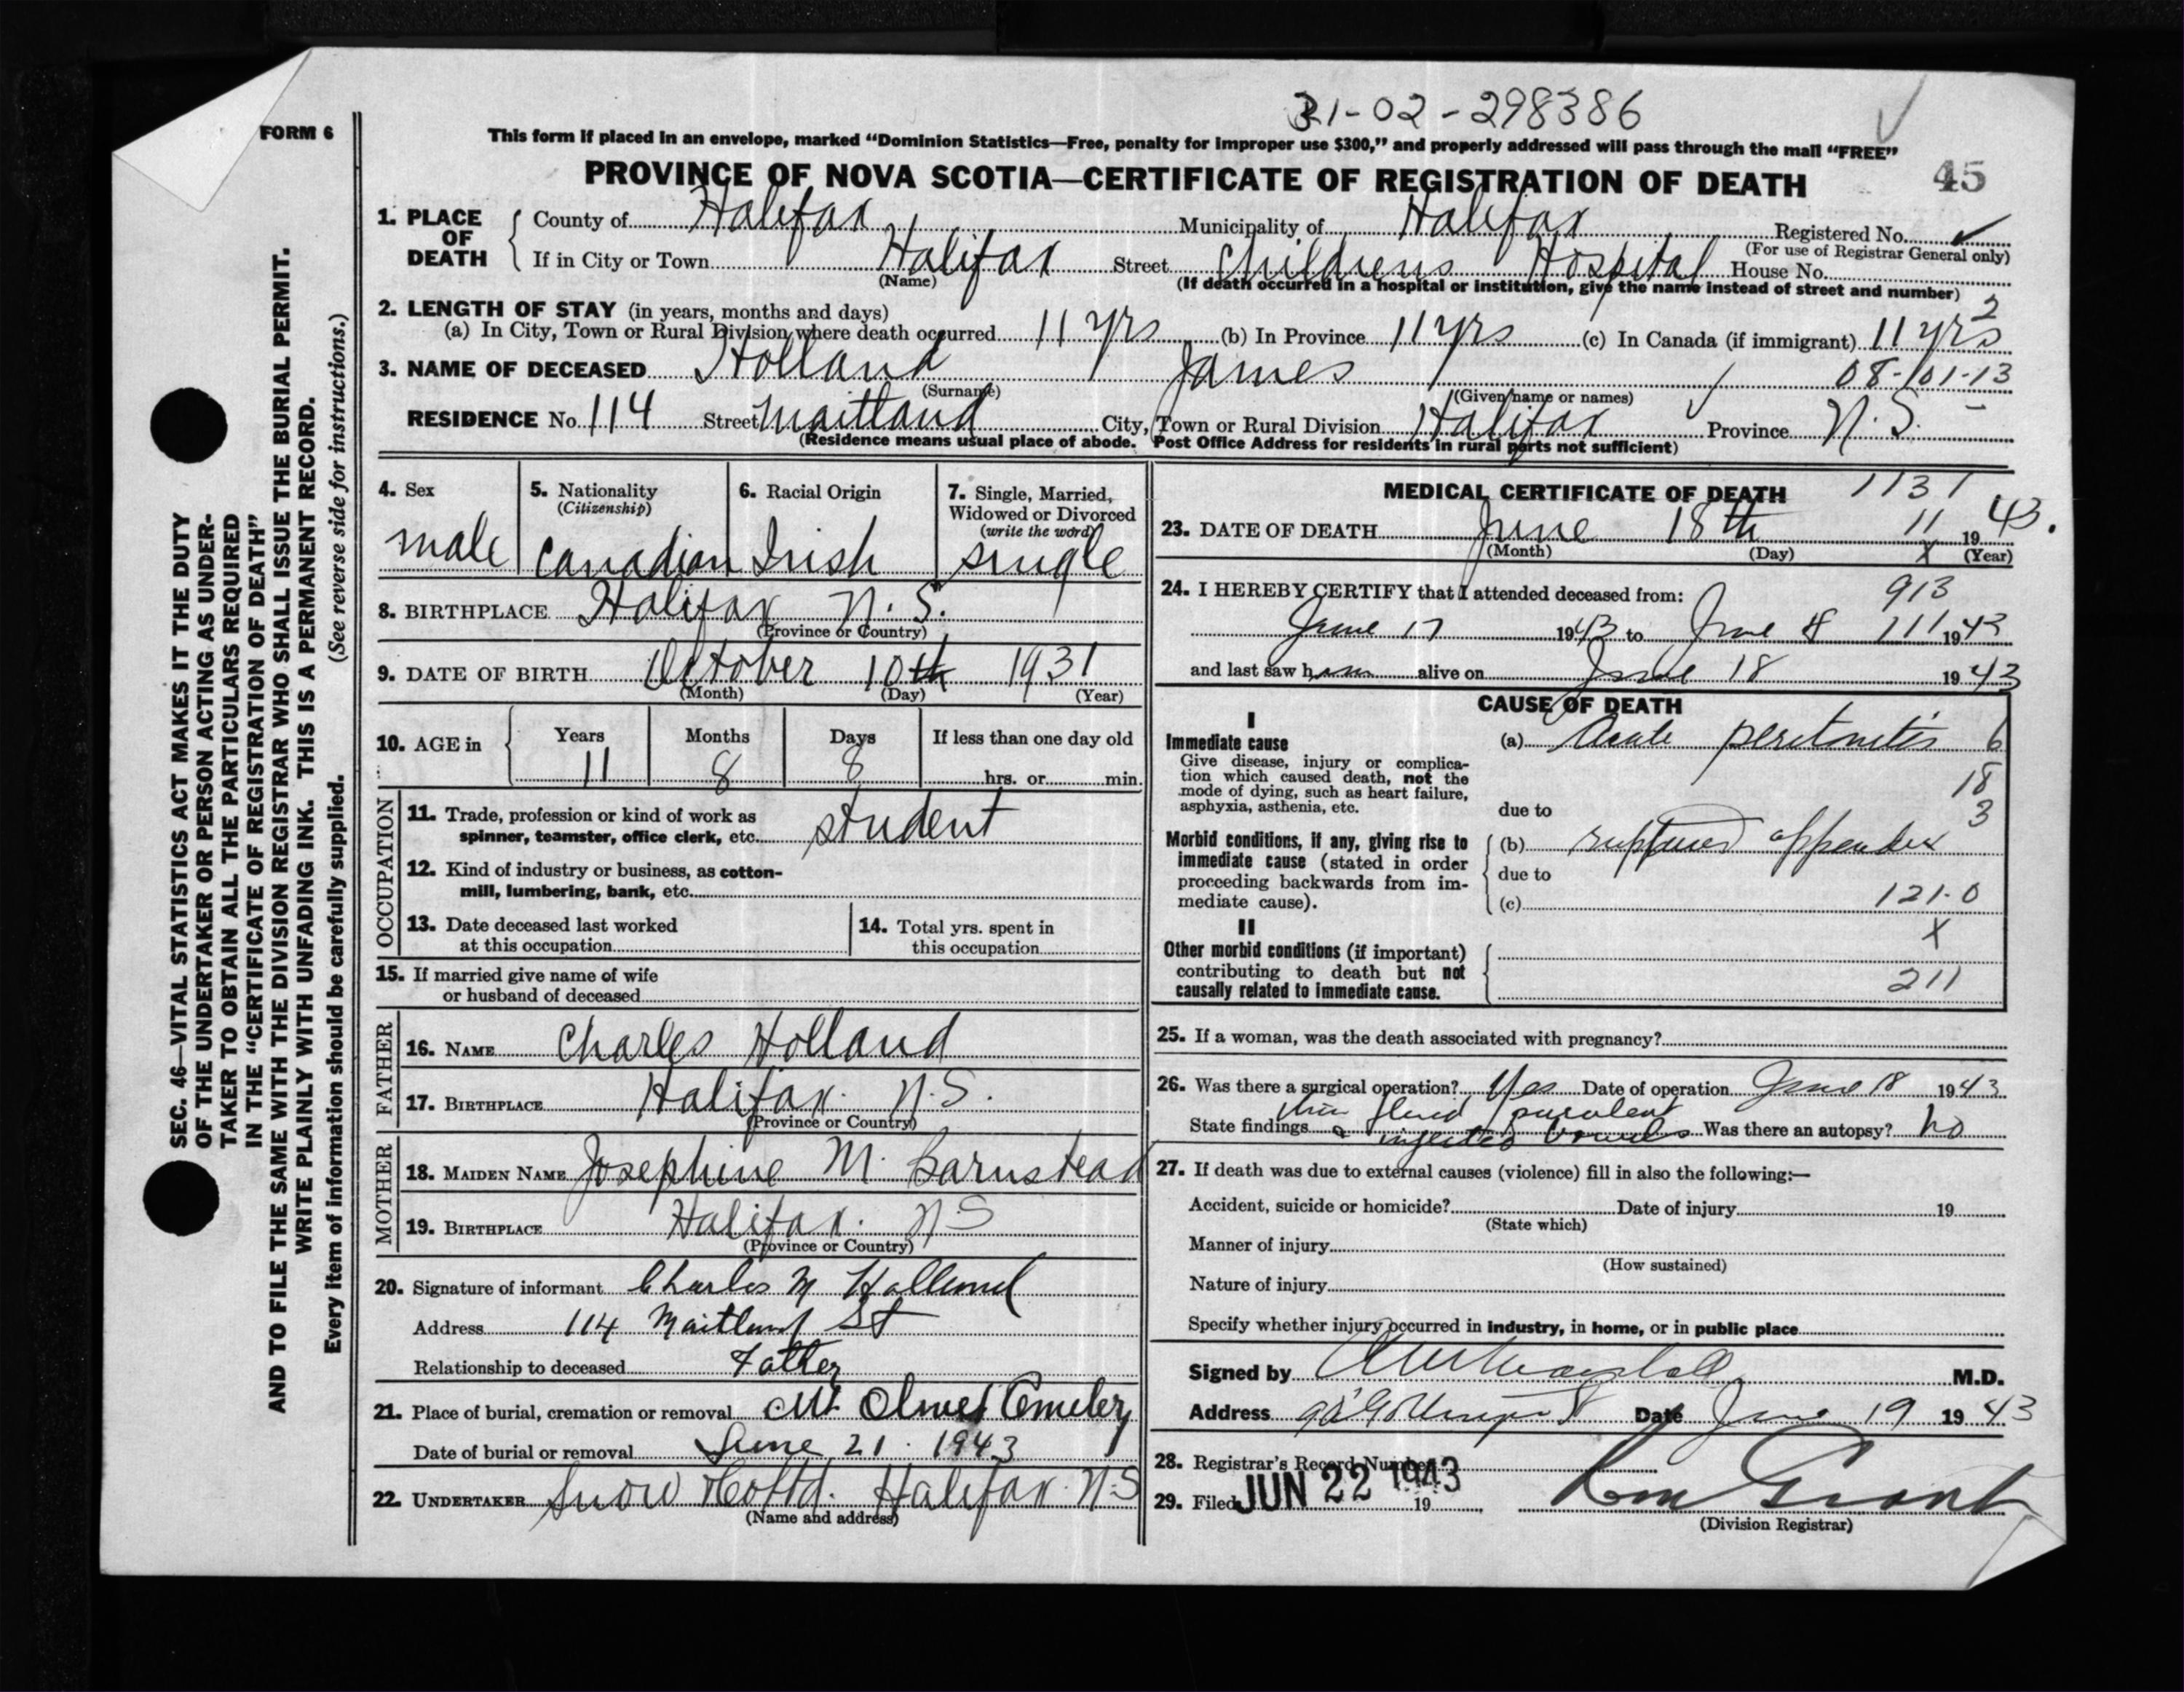 31-02-298386
FORM 6
This form if placed in an envelope, marked “Dominion Statistics—Free, penalty for improper use $300,” and properly addressed will pass through the mail “FREE”
PROVINCE OF NOVA SCOTIA—CERTIFICATE OF REGISTRATION OF DEATH 45
1. PLACE OF DEATH County of Halifax Municipality of Halifax Registered No.
(For use of Registrar General only)
If in City or Town Halifax Street Childrens Hospital House No.
(Name) (If death occurred in a hospital or institution, give the name instead of street and number)
2. LENGTH OF STAY (in years, months and days) 2
(a) In City, Town or Rural Division where death occurred 11 yrs (b) In Province 11 yrs (c) In Canada (if immigrant) 11 yrs
3. NAME OF DECEASED Holland James 08-101-13
(Surname) (Given name or names)
RESIDENCE No. 114 Street Maitland City, Town or Rural Division Halifax Province N.S.
(Residence means usual place of abode. Post Office Address for residents in rural parts not sufficient)
4. Sex
male
5. Nationality
(Citizenship)
Canadian
6. Racial Origin
Irish
7. Single, Married,
Widowed or Divorced
(write the word)
single
8. BIRTHPLACE Halifax N.S.
(Province or Country)
9. DATE OF BIRTH October 10th 1931
(Month) (Day) (Year)
10. AGE in Years Months Days If less than one day old
11 8 8 hrs. or min.
OCCUPATION
11. Trade, profession or kind of work as
spinner, teamster, office clerk, etc. student
12. Kind of industry or business, as cotton-
mill, lumbering, bank, etc.
13. Date deceased last worked
at this occupation
14. Total yrs. spent in
this occupation
15. If married give name of wife
or husband of deceased
FATHER
16. NAME Charles Holland
17. BIRTHPLACE Halifax. N.S.
(Province or Country)
MOTHER
18. MAIDEN NAME Josephine M. Barnstead
19. BIRTHPLACE Halifax. N.S
(Province or Country)
20. Signature of informant Charles M Holland
Address 114 Maitland St
Relationship to deceased Father
21. Place of burial, cremation or removal Mt. Olivet Cemetery
Date of burial or removal June 21. 1943
22. UNDERTAKER Snow Co Ltd. Halifax N.S
(Name and address)
MEDICAL CERTIFICATE OF DEATH 1131
23. DATE OF DEATH June 18th 11 1943.
(Month) (Day) X (Year)
24. I HEREBY CERTIFY that I attended deceased from: 913
June 17 1943 to June 18 111 1943
and last saw him alive on June 18 1943
CAUSE OF DEATH
I
Immediate cause
Give disease, injury or complica-
tion which caused death, not the
mode of dying, such as heart failure,
asphyxia, asthenia, etc.
(a) Acute peritonitis 6
18
due to 3
Morbid conditions, if any, giving rise to
immediate cause (stated in order
proceeding backwards from im-
mediate cause).
(b) ruptured appendix
due to
(c) 121.0
X
II
Other morbid conditions (if important)
contributing to death but not
causally related to immediate cause.
211
25. If a woman, was the death associated with pregnancy?
26. Was there a surgical operation? Yes Date of operation June 18 1943
thin fluid, purulent
State findings & injected bowels Was there an autopsy? no
27. If death was due to external causes (violence) fill in also the following:—
Accident, suicide or homicide? Date of injury 19
(State which)
Manner of injury
(How sustained)
Nature of injury
Specify whether injury occurred in industry, in home, or in public place
Signed by M.D.
Address Date June 19 1943
28. Registrar's Record Number
29. Filed JUN 22 1943 19
(Division Registrar)
SEC. 46—VITAL STATISTICS ACT MAKES IT THE DUTY
OF THE UNDERTAKER OR PERSON ACTING AS UNDER-
TAKER TO OBTAIN ALL THE PARTICULARS REQUIRED
IN THE “CERTIFICATE OF REGISTRATION OF DEATH”
AND TO FILE THE SAME WITH THE DIVISION REGISTRAR WHO SHALL ISSUE THE BURIAL PERMIT.
WRITE PLAINLY WITH UNFADING INK. THIS IS A PERMANENT RECORD.
Every item of information should be carefully supplied. (See reverse side for instructions.)